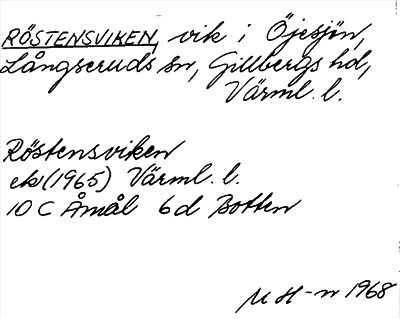 RÖSTENSVIKEN, vik i Öjesjön,
Långseruds sn, Gillbergs hd,
Värml. l.
Röstensviken
ek (1965) Värml. l.
10 C Åmål 6 d Botten
M H-n 1968